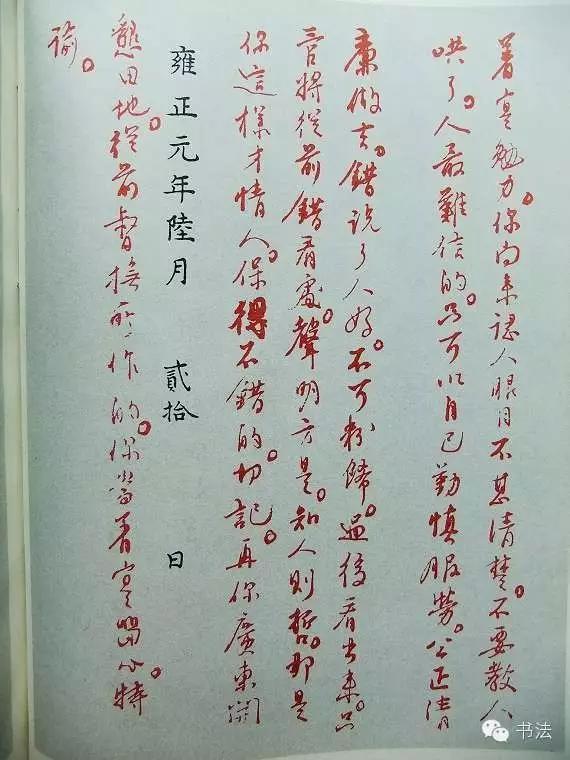 著实勉力。你向来認人眼目不甚清楚。不要教人
哄了。人最難信的。只可以自己勤慎服勞。公正清
廉做去。錯說了人好。不可粉飾。過後看出来。只
管將從前錯看處。聲明方是。知人則哲。那是
你這樣才情人。保得不錯的。切記。再你廣東開
雍正元年陸月 貳拾 日
墾田地。從前督撫所作的。你當著實留心。特
諭。
书法